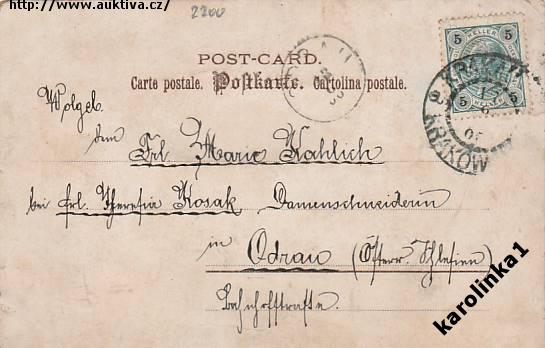 http://www.auktiva.cz/
2200
POST-CARD.
Carte postale. Postkarte. Cartolina postale.
5 HELLER 5
5 5
KRAKAU
KRAKÓW
Wolgeb.
dem
Frl. Marie Kahlich
bei Frl. Theresia Kosak, Damenschneiderin
in
Odrau (Österr. Schlesien)
Bahnhofstraße.
karolinka1